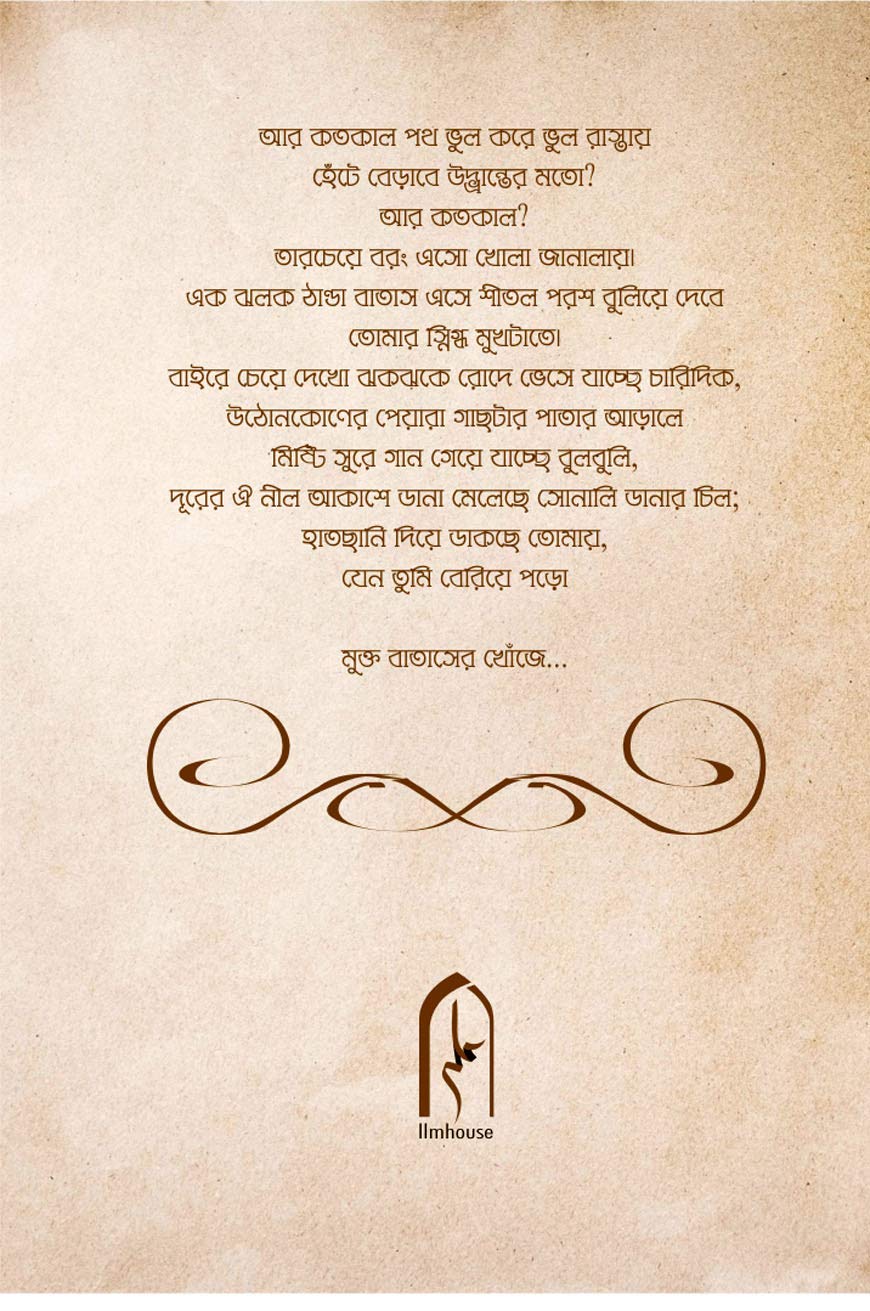 আর কতকাল পথ ভুল করে ভুল রাস্তায়
হেঁটে বেড়াবে উদ্ভ্রান্তের মতো?
আর কতকাল?
তারচেয়ে বরং এসো খোলা জানালায়।
এক ঝলক ঠান্ডা বাতাস এসে শীতল পরশ বুলিয়ে দেবে
তোমার স্নিগ্ধ মুখটাতে।
বাইরে চেয়ে দেখো ঝকঝকে রোদে ভেসে যাচ্ছে চারিদিক,
উঠোনকোণের পেয়ারা গাছটার পাতার আড়ালে
মিষ্টি সুরে গান গেয়ে যাচ্ছে বুলবুলি,
দূরের ঐ নীল আকাশে ডানা মেলেছে সোনালি ডানার চিল;
হাতছানি দিয়ে ডাকছে তোমায়,
যেন তুমি বেরিয়ে পড়ো
মুক্ত বাতাসের খোঁজে...
Ilmhouse